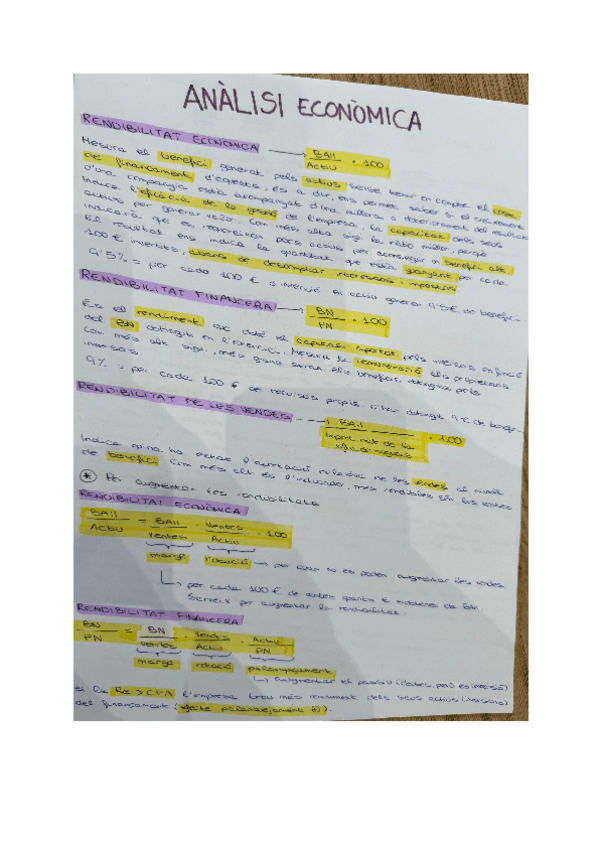 ANÀLISI ECONÒMICA
RENDIBILITAT ECONÒMICA → BAII / Actiu · 100
Mesura el benefici generat pels actius sense tenir en compte el cost
de finançament d'aquests, és a dir, ens permet saber si el creixement
d'una companyia està acompanyat d'una millora o deteriorament del resultat.
Indica l'eficàcia de la gestió de l'empresa, la capacitat dels seus
actius per generar valor. Com més alta sigui la ràtio millor, perquè
indicarà que es necessiten pocs actius per aconseguir un benefici alt.
El resultat ens indica la quantitat que està guanyant per cada
100 € invertits, abans de descomptar interessos i impostos.
9'5% = per cada 100 € d'inversió en actiu genera 9'5€ de benefici.
RENDIBILITAT FINANCERA → BN / PN · 100
És el rendiment que obté el capital aportat pels inversors en funció
del BN obtingut en l'exercici. Mesura la remuneració als propietaris
Com més alt sigui, més grans seran els beneficis obtinguts pels
inversors.
9% = per cada 100 € de recursos propis s'han obtingut 9 € de benefici.
RENDIBILITAT DE LES VENDES → BAII / Import net de la xifra de negocis · 100
Indica quina ha estat l'evolució de les vendes al nivell
de benefici. Com més alt és l'indicador, més rendibles són les vendes
* Per augmentar les rendibilitats
RENDIBILITAT ECONÒMICA
BAII / Actiu = BAII / Ventes · Ventes / Actiu · 100
marge rotació → per quan no es poden augmentar les vendes
per cada 100 € de
Serveix per augmentar la rendibilitat.
RENDIBILITAT FINANCERA
BN / PN = BN / Ventes · Ventes / Actiu · Actiu / PN
marge rotació palanquejament
augmentar el passiu (deutes, però és interès)
Re > CFA l'empresa treu més rendiment dels seus actius (inversió)
del finançament (efecte palanquejament +).